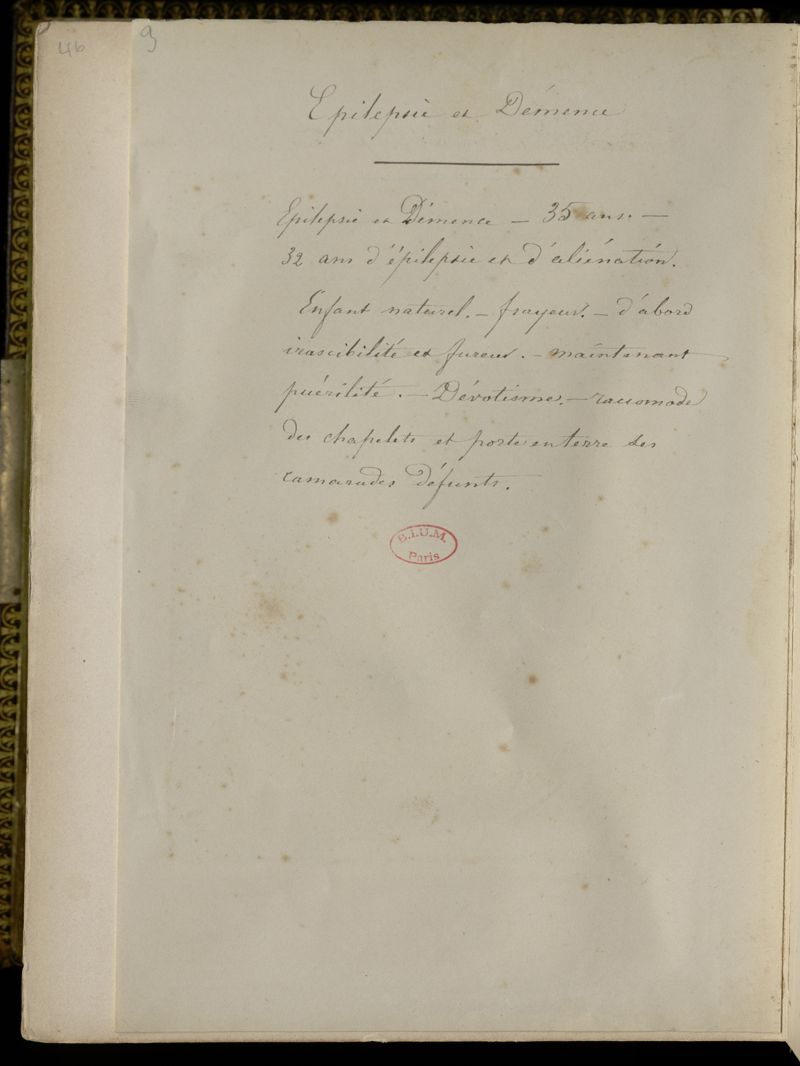 46
9
Epilepsie et Démence
Epilepsie et Démence — 35 ans. —
32 ans d'épilepsie et d'aliénation.
Enfant naturel. — frayeur. — d'abord
irascibilité et fureur. — maintenant
puérilité. — Dévotisme. — raccomode
des chapelets et porte en terre ses
camarades défunts.
B.I.U.M.
Paris